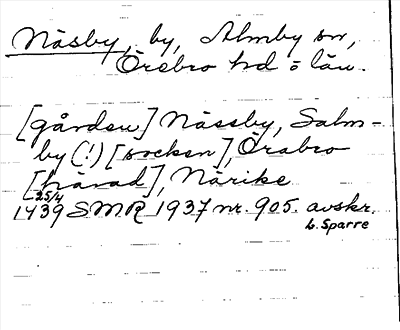 Näsby, by, Almby sn,
Örebro hd o län.
[gården] Nässby, Salm-
by (!) [socken], Örabro
[härad], Närike
25/4
1439 SMR 1937 nr. 905. avskr.
L. Sparre